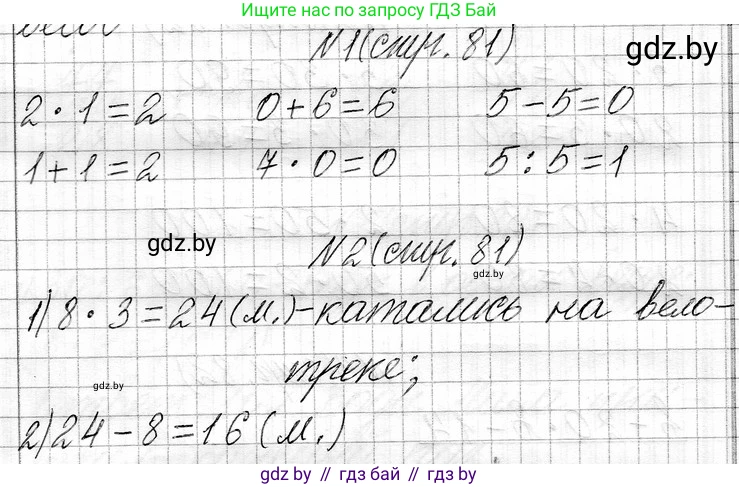 Ищите нас по запросу ГДЗ Бай
N1(стр. 81)
gdz.by
2 · 1 = 2 0+6=6 5-5=0
1+1=2 7 · 0=0 5:5=1
gdz.by
N2(стр. 81)
gdz.by
1) 8 · 3 = 24 (м.)-катались на вело-
треке;
gdz.by
2) 24 - 8 = 16 (м.)
gdz.by // гдз бай // гдз by